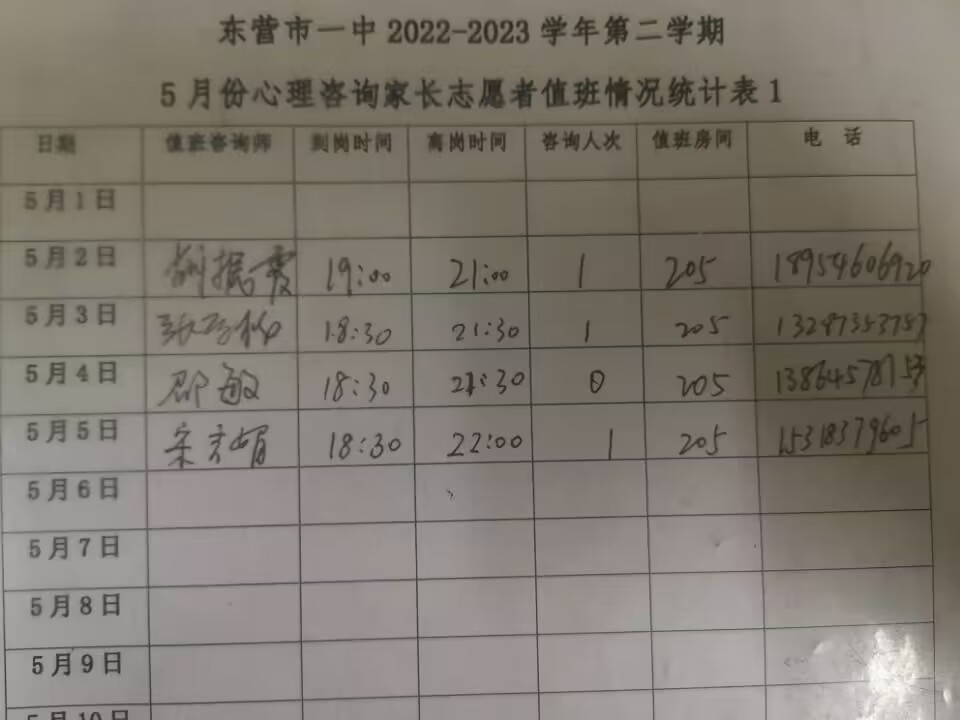 东营市一中 2022-2023 学年第二学期
5 月份心理咨询家长志愿者值班情况统计表 1
日期 值班咨询师 到岗时间 离岗时间 咨询人次 值班房间 电 话
5 月 1 日
5 月 2 日 19:00 21:00 1 205 18954606920
5 月 3 日 18:30 21:30 1 205 13287353757
5 月 4 日 邵敏 18:30 21:30 0 205 13864578153
5 月 5 日 18:30 22:00 1 205 15318379605
5 月 6 日
5 月 7 日
5 月 8 日
5 月 9 日
5 月 10 日